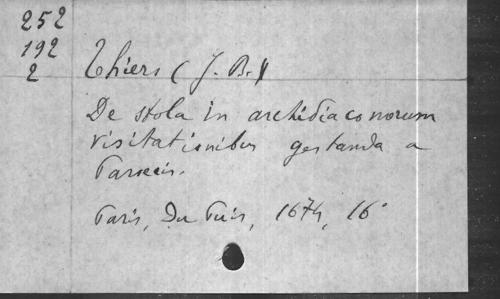 252
192
2
Thiers (J. B.)
De stola in archidiaconorum
visitationibus gestanda a
Paroecis.
Paris, Du Puis, 1674, 16°